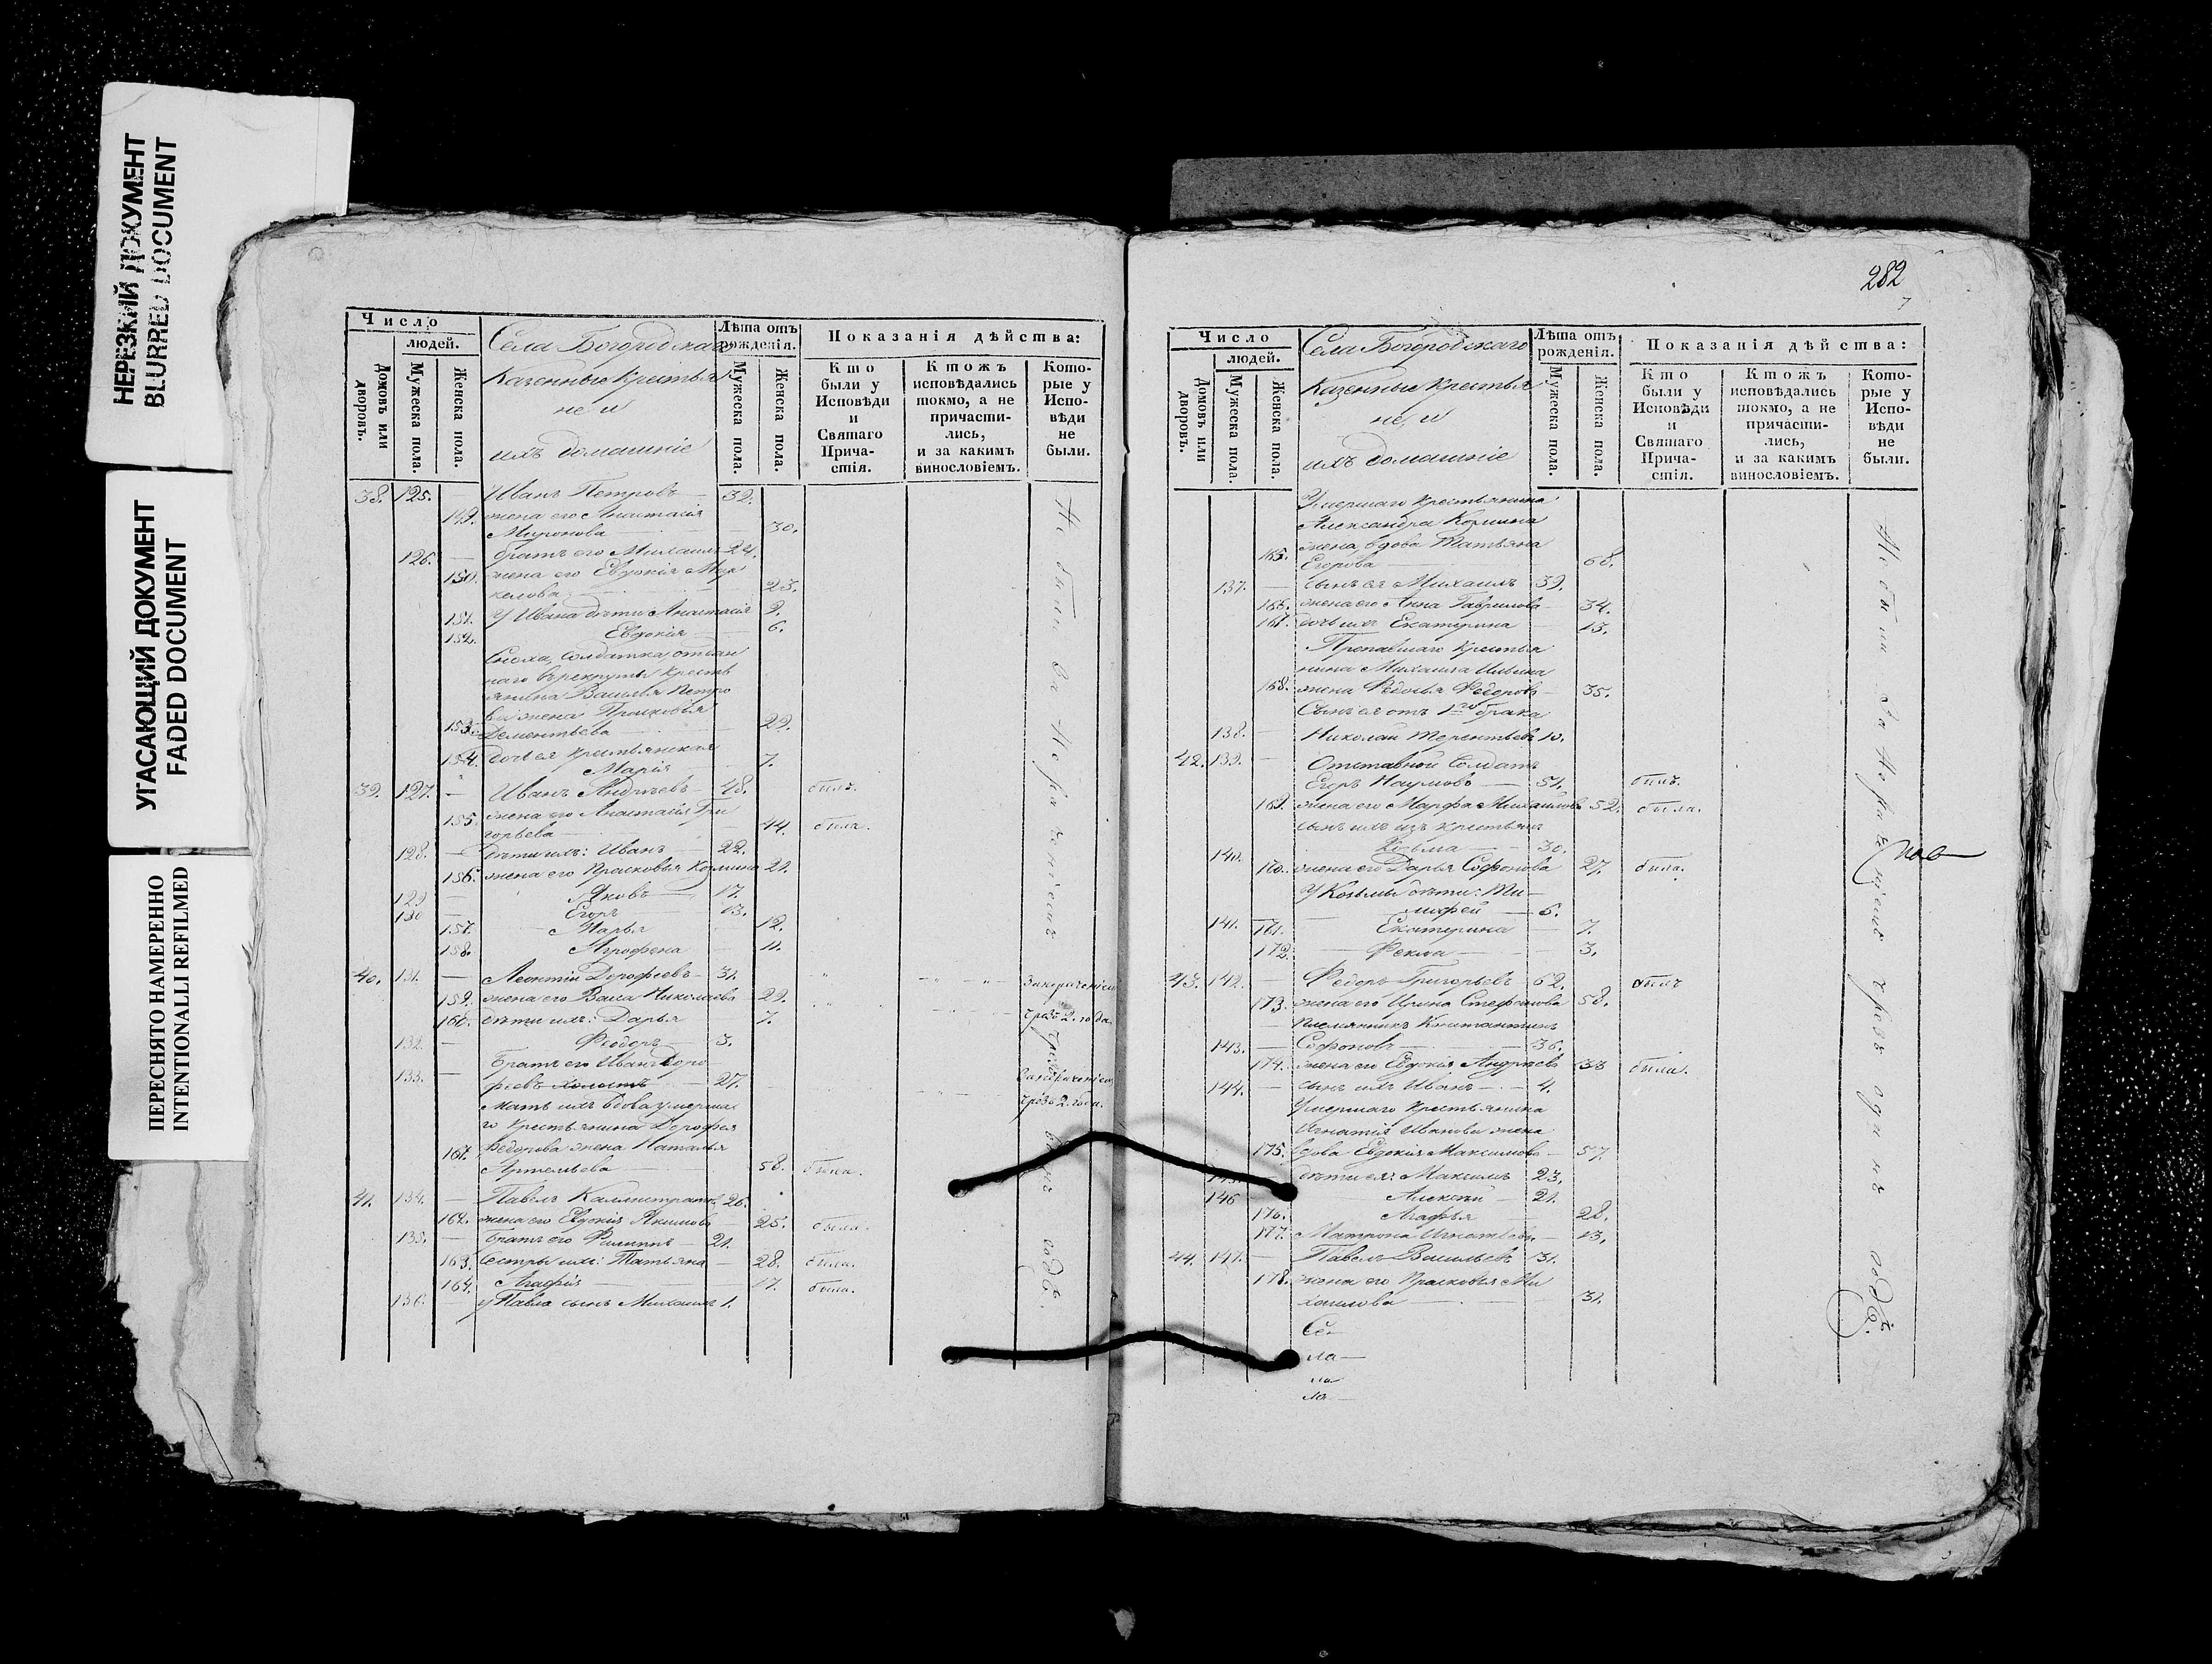 НЕРЕЗКИЙ ДОКУМЕНТ
BLURRED DOCUMENT
УГАСАЮЩИЙ ДОКУМЕНТ
FADED DOCUMENT
ПЕРЕСНЯТО НАМЕРЕННО
INTENTIONALLI REFILMED
Число
людей.
Домовъ или дворовъ.
Мужеска пола.
Женска пола.
Села Богородскаго
Казенные крестья
не и
ихъ домашніе
Лѣта отъ рожденія.
Мужеска пола.
Женска пола.
Показанія дѣйства:
Кто были у Исповѣди и Святаго Прича-стія.
Ктожъ исповѣдались токмо, а не причасти-лись, и за какимъ винословіемъ.
Кото-рые у Испо-вѣди не были.
38. 125. — Иванъ Петровъ — 32.
149. жена его Анастасія
Миронова — 30.
126. — братъ его Михаилъ 24.
150. жена его Евдокія Мар
келова — 23.
151. У Ивана дѣти Анастасія 9.
152. Евдокія — 6.
Сноха, солдатка, отдан
наго въ рекруты кресть
янина Василья Петро
ва жена Прасковья
153. Дементьева — 29.
154. дочь ея крестьянская
Марія — 7.
39. 127. — Иванъ Андреевъ — 48. былъ.
155. жена его Анастасія Гри
горьева — 44. была.
128. — дѣти ихъ: Иванъ — 22.
156. жена его Прасковья Козмина 21.
129 — Яковъ — 17.
130 — Егоръ — 13.
157. Марья — 12.
158. Агрофена — 11.
40. 131. — Леонтій Дорофеевъ — 31.
159. жена его Васса Николаева 29.
160. дѣти ихъ: Дарья — 7.
чрезъ 2. года.
132. — Феодоръ — 3.
Братъ его Иванъ Доро
133. — феевъ холостъ — 27.
Мать ихъ вдова умерша
го крестьянина Дорофея
чрезъ 2. года.
161. Ѳедорова жена Наталья
Артемьева — 58. была.
41. 134. — Павелъ Каллистратовъ 26.
162. жена его Евдокія Якимова — 25. была.
135. — Братъ его Филиппъ — 21.
163. Сестры ихъ: Татьяна — 28. была.
164. Агафія — 17. была.
136. — у Павла сынъ Михаилъ 1.
Не были за нераченіемъ
282
Число
людей.
Домовъ или дворовъ.
Мужеска пола.
Женска пола.
Села Богородскаго
Казенные крестья
не, и
ихъ домашніе
Лѣта отъ рожденія.
Мужеска пола.
Женска пола.
Показанія дѣйства:
Кто были у Исповѣди и Святаго Прича-стія.
Ктожъ исповѣдались токмо, а не причасти-лись, и за какимъ винословіемъ.
Кото-рые у Испо-вѣди не были.
Умершаго крестьянина
Александра Козмина
жена, вдова Татьяна
165. Егорова — 68.
137. — сынъ ея Михаилъ 39.
166. жена его Анна Гаврилова — 34.
167. дочь ихъ Екатерина — 13.
Пропавшаго крестья
нина Михаила Ильина
168. жена Федосья Федорова — 35.
Сынъ ея отъ 1го брака
138. — Николай Терентьевъ 10.
42. 139. — Отставной Солдатъ
Егоръ Наумовъ — 54. былъ.
169. жена его Марфа Михайлова 52. была.
сынъ ихъ изъ крестьянъ
140. Козьма — 30.
170. жена его Дарья Софронова 27. была.
У Козьмы дѣти: Ти—
141. мофей — 6.
171. Екатерина — 7.
172. Фекла — 3.
43. 142. — Федоръ Григорьевъ — 62. былъ
173. жена его Ирина Стефанова 58.
— племянникъ Константинъ
143. — Софоновъ — 36.
174. жена его Евдокія Андреева 33 была.
144. — сынъ ихъ Иванъ — 4.
Умершаго крестьянина
Игнатія Иванова жена
175. вдова Евдокія Максимова — 57.
145. дѣти ея: Максимъ — 23.
146 Алексѣй — 21.
176. Агафья 28.
177. Матрона Игнатьева — 13.
44. 147. — Павелъ Васильевъ 31.
178. жена его Прасковья Ми
хаилова — 31.
Се—
ла—
Не были за нераченіемъ чрезъ одинъ годъ.